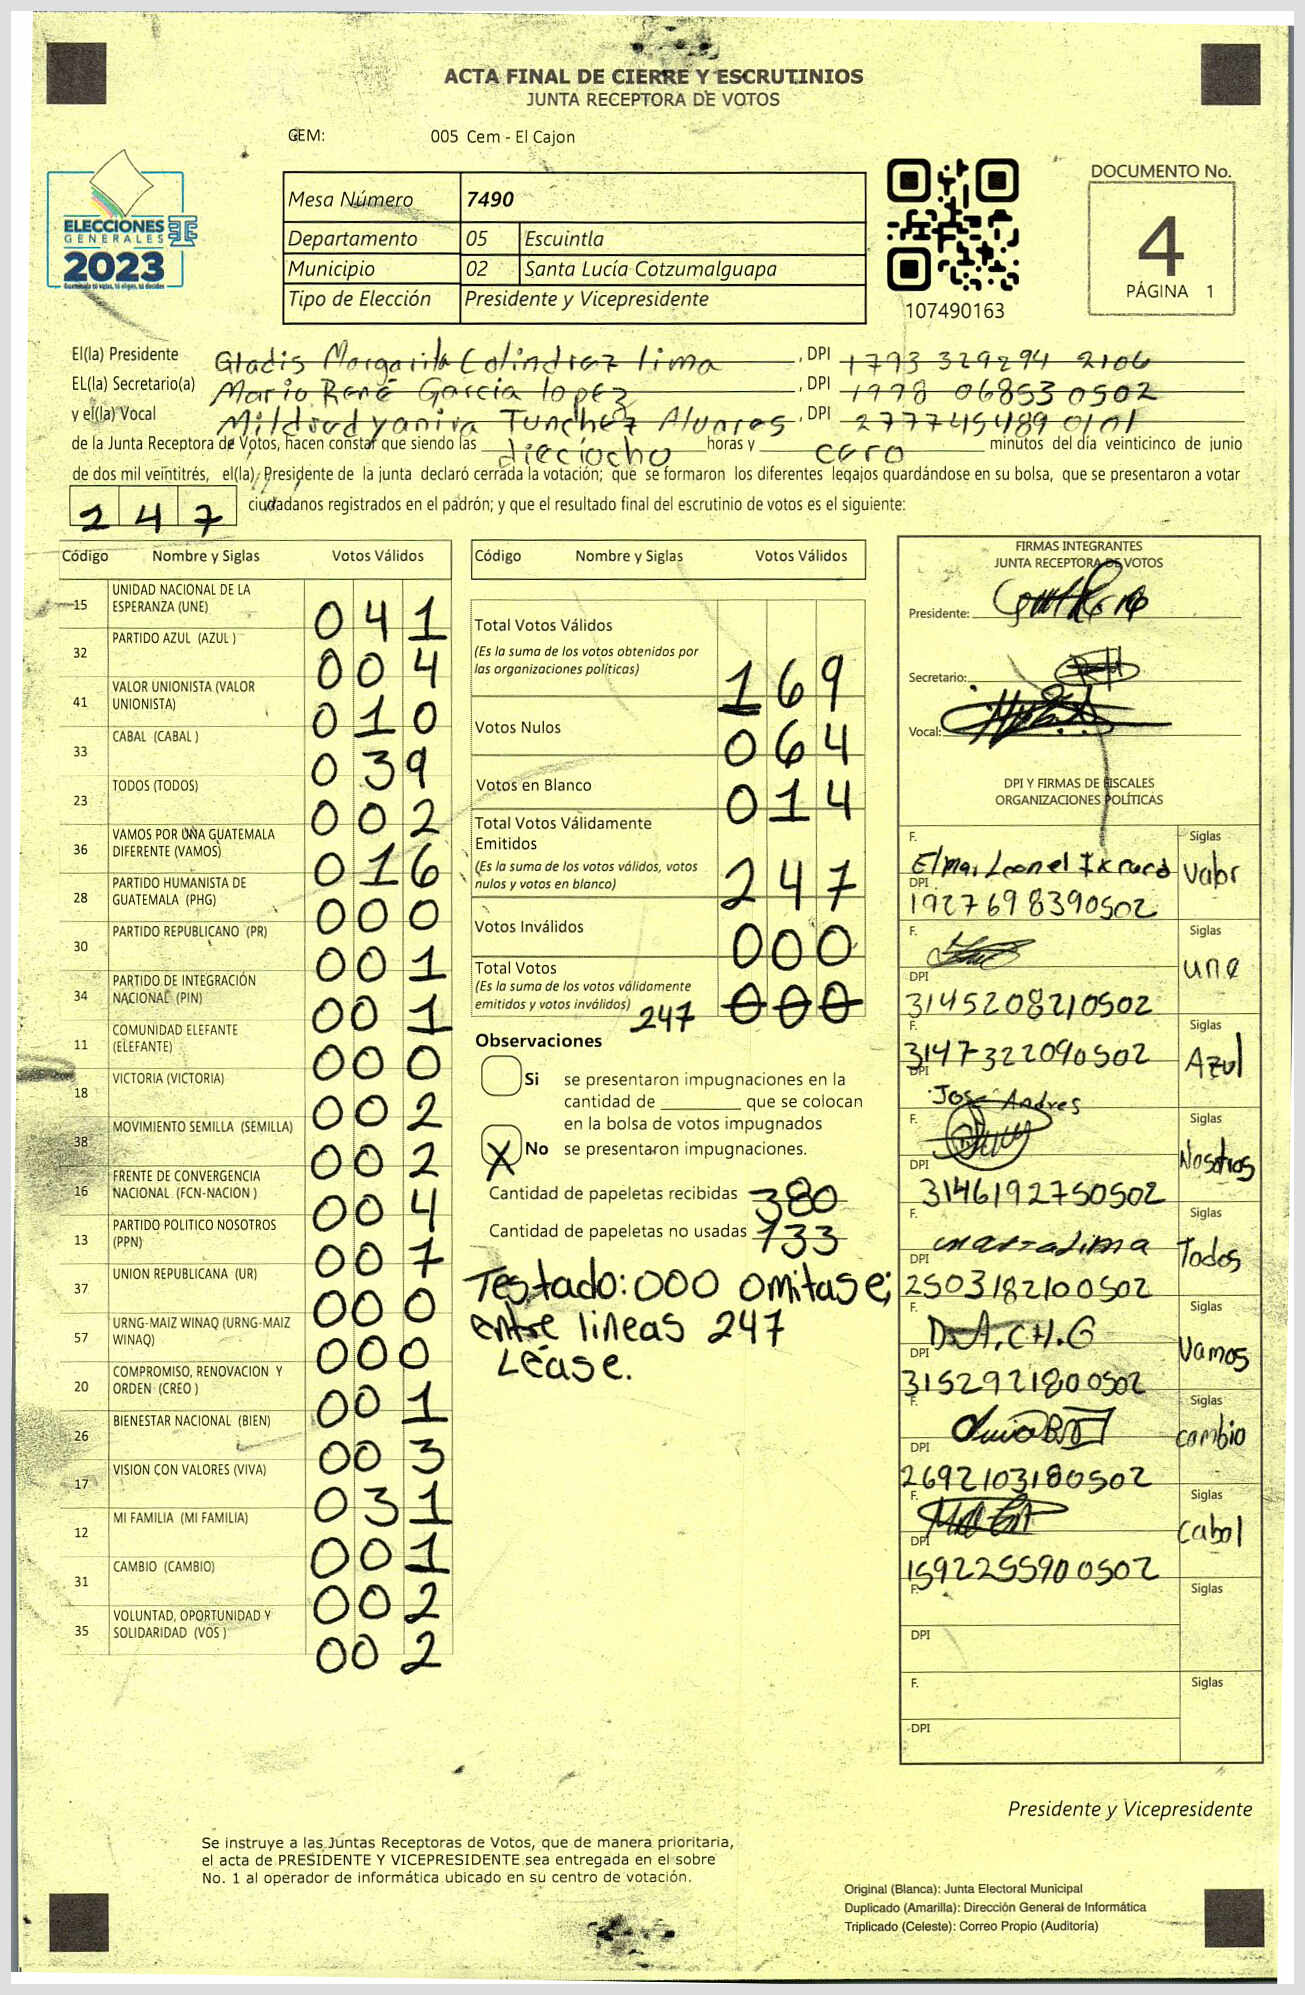 ACTA FINAL DE CIERRE Y ESCRUTINIOS
JUNTA RECEPTORA DE VOTOS
CEM: 005 Cem - El Cajon
ELECCIONES
GENERALES
2023
Guatemala tú votas, tú eliges, tú decides
Mesa Número 7490
Departamento 05 Escuintla
Municipio 02 Santa Lucía Cotzumalguapa
Tipo de Elección Presidente y Vicepresidente
107490163
DOCUMENTO No.
4
PÁGINA 1
El(la) Presidente Gladis Margarita Colindrez lima, DPI 1793 329294 2106
EL(la) Secretario(a) Mario René Garcia lopez, DPI 1998 06853 0502
y el(la) Vocal Mildred yanira Tunchez Alvares, DPI 2777454890101
de la Junta Receptora de Votos, hacen constar que siendo las dieciocho horas y cero minutos del día veinticinco de junio
de dos mil veintitrés, el(la) Presidente de la junta declaró cerrada la votación; que se formaron los diferentes legajos guardándose en su bolsa, que se presentaron a votar
247 ciudadanos registrados en el padrón; y que el resultado final del escrutinio de votos es el siguiente:
Código Nombre y Siglas Votos Válidos
15 UNIDAD NACIONAL DE LA ESPERANZA (UNE) 041
32 PARTIDO AZUL (AZUL ) 004
41 VALOR UNIONISTA (VALOR UNIONISTA) 010
33 CABAL (CABAL ) 039
23 TODOS (TODOS) 002
36 VAMOS POR UNA GUATEMALA DIFERENTE (VAMOS) 016
28 PARTIDO HUMANISTA DE GUATEMALA (PHG) 000
30 PARTIDO REPUBLICANO (PR) 001
34 PARTIDO DE INTEGRACIÓN NACIONAL (PIN) 001
11 COMUNIDAD ELEFANTE (ELEFANTE) 000
18 VICTORIA (VICTORIA) 002
38 MOVIMIENTO SEMILLA (SEMILLA) 002
16 FRENTE DE CONVERGENCIA NACIONAL (FCN-NACION ) 004
13 PARTIDO POLITICO NOSOTROS (PPN) 007
37 UNION REPUBLICANA (UR) 000
57 URNG-MAIZ WINAQ (URNG-MAIZ WINAQ) 000
20 COMPROMISO, RENOVACION Y ORDEN (CREO ) 001
26 BIENESTAR NACIONAL (BIEN) 003
17 VISION CON VALORES (VIVA) 031
12 MI FAMILIA (MI FAMILIA) 001
31 CAMBIO (CAMBIO) 002
35 VOLUNTAD, OPORTUNIDAD Y SOLIDARIDAD (VOS ) 002
Código Nombre y Siglas Votos Válidos
Total Votos Válidos
(Es la suma de los votos obtenidos por
las organizaciones políticas) 169
Votos Nulos 064
Votos en Blanco 014
Total Votos Válidamente
Emitidos
(Es la suma de los votos válidos, votos
nulos y votos en blanco) 247
Votos Inválidos 000
Total Votos
(Es la suma de los votos válidamente
emitidos y votos inválidos) 247 000
Observaciones
Si se presentaron impugnaciones en la
cantidad de ________ que se colocan
en la bolsa de votos impugnados
X No se presentaron impugnaciones.
Cantidad de papeletas recibidas 380
Cantidad de papeletas no usadas 133
Testado: 000 omitase;
entre lineas 247
Léase.
FIRMAS INTEGRANTES
JUNTA RECEPTORA DE VOTOS
Presidente:
Secretario:
Vocal:
DPI Y FIRMAS DE FISCALES
ORGANIZACIONES POLÍTICAS
F. Siglas
Elmar Leonel Valor
DPI 1927698390502
F. Siglas
une
DPI 3145208210502
F. Siglas
3147322090502 Azul
DPI José Andres
F. Siglas
Nosotros
DPI 3146192750502
F. Siglas
Todos
DPI 2503182100502
F. D.A.CH.G Siglas
Vamos
DPI 3152921800502
F. Siglas
cambio
DPI 2692103180502
F. Siglas
cabal
DPI 1592255900502
F. Siglas
DPI
F. Siglas
DPI
Presidente y Vicepresidente
Se instruye a las Juntas Receptoras de Votos, que de manera prioritaria,
el acta de PRESIDENTE Y VICEPRESIDENTE sea entregada en el sobre
No. 1 al operador de informática ubicado en su centro de votación.
Original (Blanca): Junta Electoral Municipal
Duplicado (Amarilla): Dirección General de Informática
Triplicado (Celeste): Correo Propio (Auditoría)